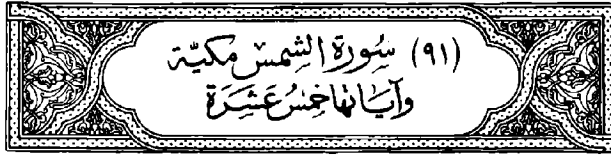 (٩١) سُورَةُ الشَّمْسِ مَكِيَّة
وَآيَاتُهَا خَمْسُ عَشَرَة